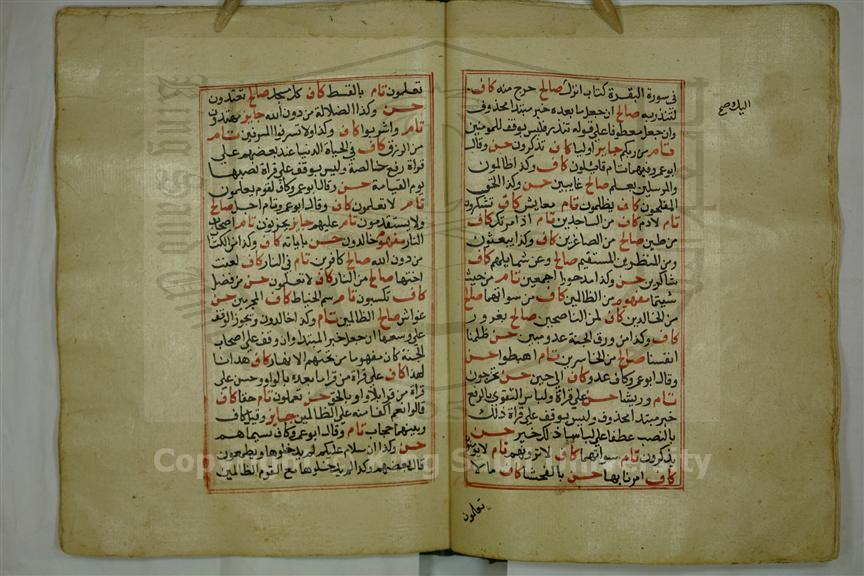 في سورة البقرة كتاب انزل صالح حرج منه كاف
لتنذر به صالح ان جعل ما بعده خبر مبتدا محذوف
وان جعل معطوفا على قوله تنذر فليس بوقف للمومنين
تام من ربكم جايز اوليا كاف تذكرون حسن وقال
ابو عمرو فيهما تام قايلون كاف وكذا ظالمون
والمرسلين بعلم صالح غايبين حسن وكذا الحق
المفلحون كاف يظلمون تام معايش كاف تشكرون
تام لادم كاف من الساجدين تام اذ امرتك كاف
من طين صالح من الصاغرين كاف وكذا يبعثون
ومن المنظرين المستقيم صالح وعن شمايلهم كاف
شاكرين حسن وكذا مدحورا اجمعين تام من حيث
شيتما مفهوم من الظالمين كاف من سواتهما صالح
من الخالدين كاف لمن الناصحين صالح بغرور
كاف وكذا من ورق الجنة عدو مبين حسن ظلمنا
انفسنا صالح من الخاسرين تام اهبطوا حسن
وقال ابو عمرو كاف عدو كاف الى حين حسن تخرجون
تام وريشا حسن على قراة ولباس التقوى بالرفع
خبر مبتدا محذوف وليس بوقف على قراة ذلك
بالنصب عطفا على لباسا ذلك خير حسن
يذكرون تام سواتهما كاف لا ترونهم تام لا يومنون
كاف امرنا بها حسن بالفحشا كاف ما لا
تعلمون
تعلمون تام بالقسط كاف كل مسجد صالح تعتدون
حسن وكذا الضلالة من دون الله جايز مهتدون
تام واشربوا كاف وكذا ولا تسرفوا المسرفين تام
من الرزق كاف في الحياة الدنيا عند بعضهم على
قراة رفع خالصة وليس بوقف على قراة نصبها
يوم القيامة حسن وقال ابو عمرو كاف لقوم يعلمون
تام لا تعلمون كاف وقال ابو عمرو تام اجل صالح
ولا يستقدمون تام عليهم جايز يحزنون تام اصحاب
النار مفهوم خالدون حسن باياته كاف وكذا من الكتاب
من دون الله صالح كافرين تام في النار كاف لعنت
اختها صالح من النار كاف لا تعلمون حسن من فضل
كاف تكسبون تام سم الخياط كاف المجرمين حسن
غواش صالح الظالمين تام وكذا خالدون ويجوز الوقف
على وسعها ان جعل خبر المبتدا وان وقف على اصحاب
الجنة كان مفهوما من تحتهم الانهار كاف هدانا
لهذا كاف على قراة من قرا ما بعده بالواو وحسن على
قراة من قرا بلا واو بالحق حسن تعملون تام حقا كاف
قالوا نعم اكفا منه على الظالمين جايز وقيل كاف
وبينهما حجاب تام وقال ابو عمرو كاف سيماهم
حسن وكذا ان سلام عليكم لم يدخلوها ويطمعون
قال بعضهم وكذا لم يدخلوها مع القوم الظالمين